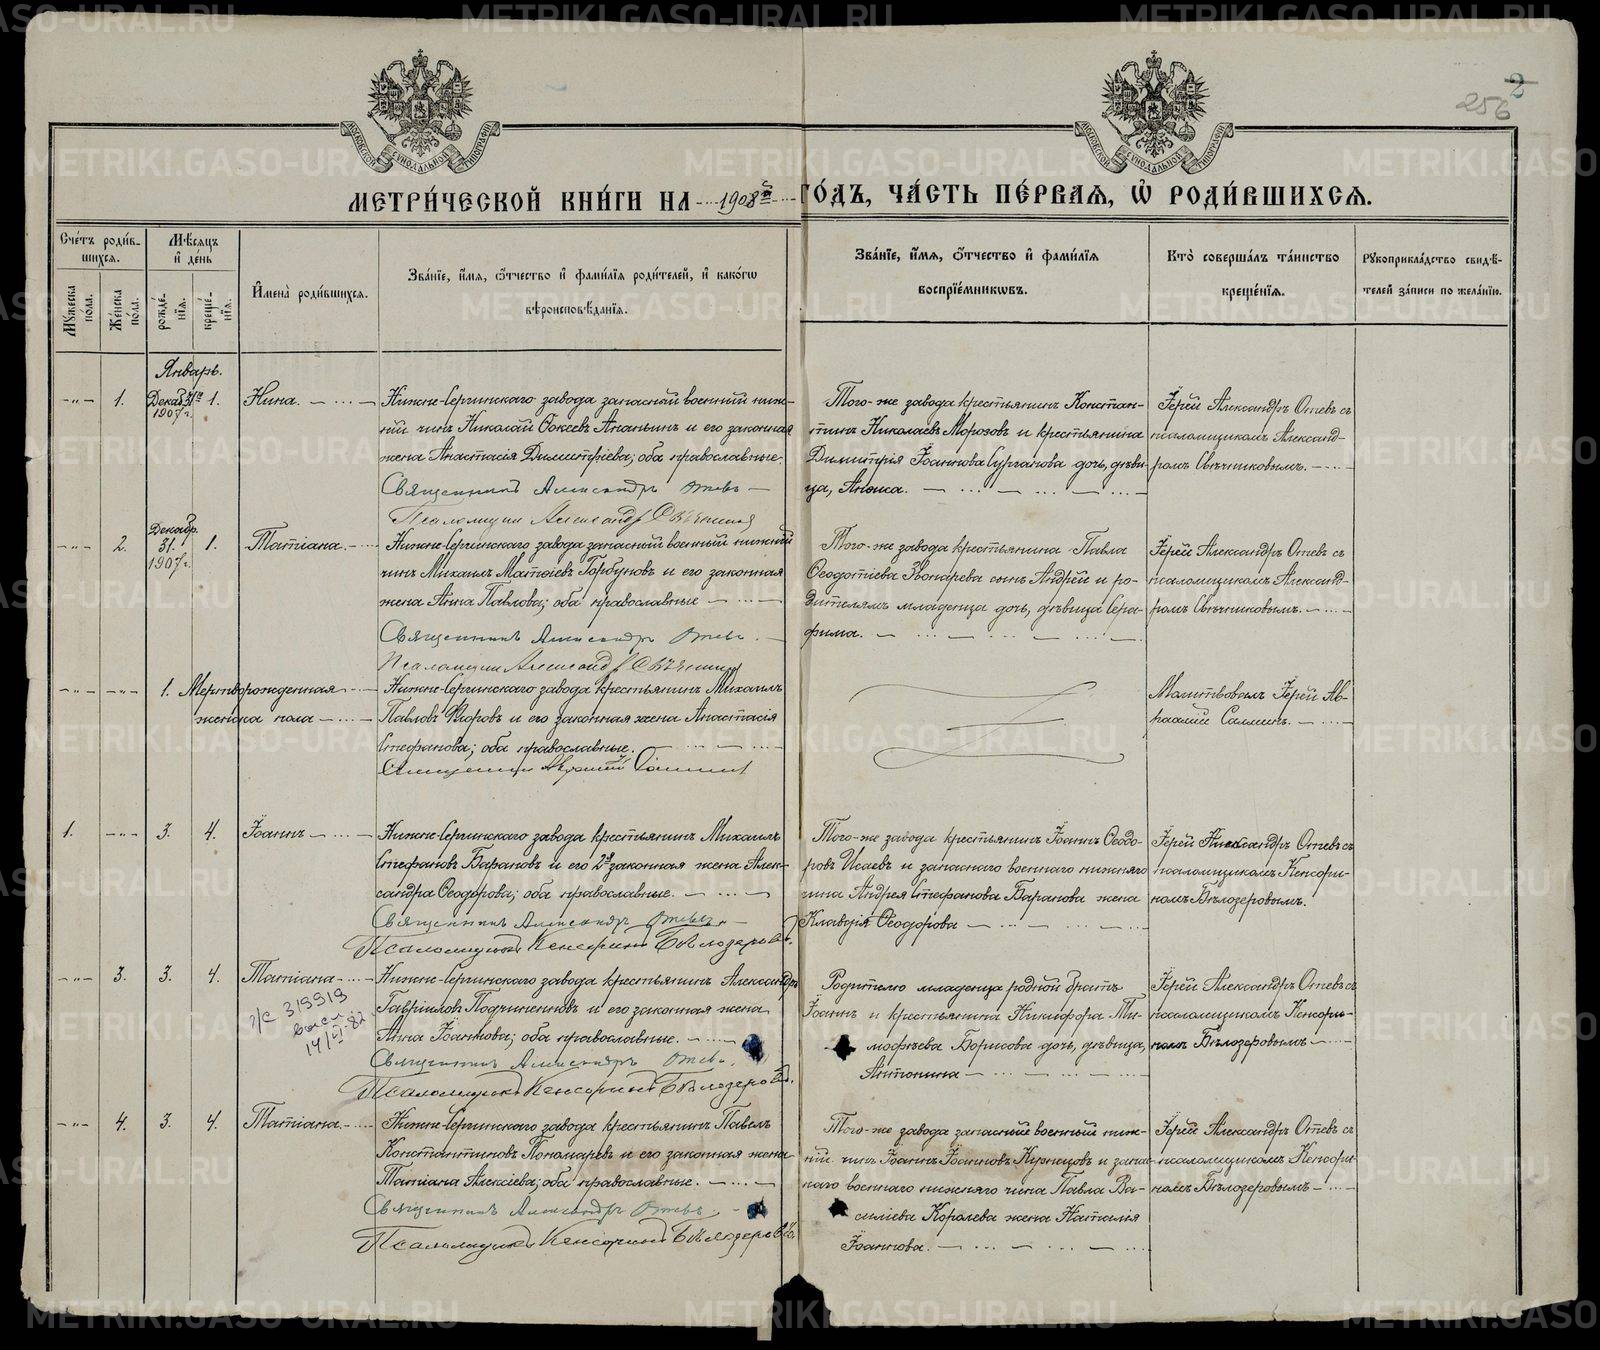 256 2
МОСКОВСКОЙ СѴНОДАЛЬНОЙ ТИПОГРАФІИ
МОСКОВСКОЙ СѴНОДАЛЬНОЙ ТИПОГРАФІИ
МЕТРИ́ЧЕСКОЙ КНИ́ГИ НА 1908й ГО́ДЪ, ЧА́СТЬ ПЕ́РВАЯ, Ѡ҆ РОДИ́ВШИХСЯ.
Сче́тъ роди́в-
шихся.
Мꙋжеска пола.
Же́нска по́ла.
Мѣ́сяцъ
и҆ де́нь
рожде́-
нїя.
креще́-
нїя.
И҆мена̀ роди́вшихся.
Зва́нїе, и҆́мя, ѻ҆́тчество и҆ фами́лїя роди́телей, и҆ како́гѡ
вѣроисповѣ́данїя.
Зва́нїе, и҆́мя, ѻ҆́тчество и҆ фами́лїя
воспрїе́мникѡвъ.
Кто̀ соверша́лъ та́инство
креще́нїя.
Рꙋкоприкла́дство свидѣ́-
телей за́писи по жела́нїю.
Январь.
-„- 1. Декаб. 31го 1907 г. 1. Нина.
Нижне-Сергинскаго завода запасный военный ниж-
ній чинъ Николай Фокеевъ Ананьинъ и его законная
жена Анастасія Димитріева; оба православные.
Священникъ Александръ Отевъ
Псаломщик Александръ Свѣчников
Того-же завода крестьянинъ Констан-
тинъ Николаевъ Морозовъ и крестьянина
Димитрія Іоаннова Сурганова дочь, дѣви-
ца, Анѳиса.
Іерей Александръ Отевъ съ
псаломщикомъ Александ-
ромъ Свѣчниковымъ.
-„- 2. Декабр. 31. 1907 г. 1. Татіана.
Нижне-Сергинскаго завода запасный военный нижній
чинъ Михаилъ Матѳіевъ Горбуновъ и его законная
жена Анна Павлова; оба православные
Священникъ Александръ Отевъ.
Псаломщик Александръ Свѣчников
Того-же завода крестьянина Павла
Ѳеодотіева Звонарева сынъ Андрей и ро-
дителямъ младенца дочь, дѣвица Сера-
фима.
Іерей Александръ Отевъ съ
псаломщикомъ Александ-
ромъ Свѣчниковымъ.
-„- -„- 1. Мертворожденная
женска пола
Нижне-Сергинскаго завода крестьянинъ Михаилъ
Павловъ Флоровъ и его законная жена Анастасія
Стефанова; оба православные.
Священник Авраамій Салмин
Молитвовалъ Іерей Ав-
раамій Салминъ.
1. -„- 3. 4. Іоаннъ
Нижне-Сергинскаго завода крестьянинъ Михаилъ
Стефановъ Барановъ и его 2я законная жена Алек-
сандра Ѳеодорова; оба православные.
Священникъ Александръ Отевъ.
Псаломщикъ Кенсоринъ Бѣлозеровъ.
Того-же завода крестьянинъ Іоаннъ Ѳеодо-
ровъ Исаевъ и запаснаго военнаго нижняго
чина Андрея Стефанова Баранова жена
Клавдія Ѳеодорова
Іерей Александръ Отевъ съ
псаломщикомъ Кенсори-
номъ Бѣлозеровымъ.
-„- 3. 3. 4. Татіана
319919
14/VI-82
Нижне-Сергинскаго завода крестьянинъ Александръ
Гавріиловъ Подчиненновъ и его законная жена
Анна Іоаннова; оба православные.
Священникъ Александръ Отевъ.
Псаломщикъ Кенсоринъ Бѣлозеровъ.
Родителю младенца родной братъ
Іоаннъ и крестьянина Никифора Ти-
моѳеева Борисова дочь, дѣвица,
Антонина
Іерей Александръ Отевъ съ
псаломщикомъ Кенсори-
номъ Бѣлозеровымъ
-„- 4. 3. 4. Татіана.
Нижне-Сергинскаго завода крестьянинъ Павелъ
Константиновъ Пономаревъ и его законная жена
Татіана Алексіева; оба православные.
Священникъ Александръ Отевъ.
Псаломщикъ Кенсоринъ Бѣлозеровъ.
Того-же завода запасный военный ниж-
ній чинъ Іоаннъ Іоанновъ Кузнецовъ и запас-
наго военнаго нижняго чина Павла Ва-
силіева Королева жена Наталія
Іоаннова.
Іерей Александръ Отевъ съ
псаломщикомъ Кенсори-
номъ Бѣлозеровымъ
METRIKI.GASO-URAL.RU